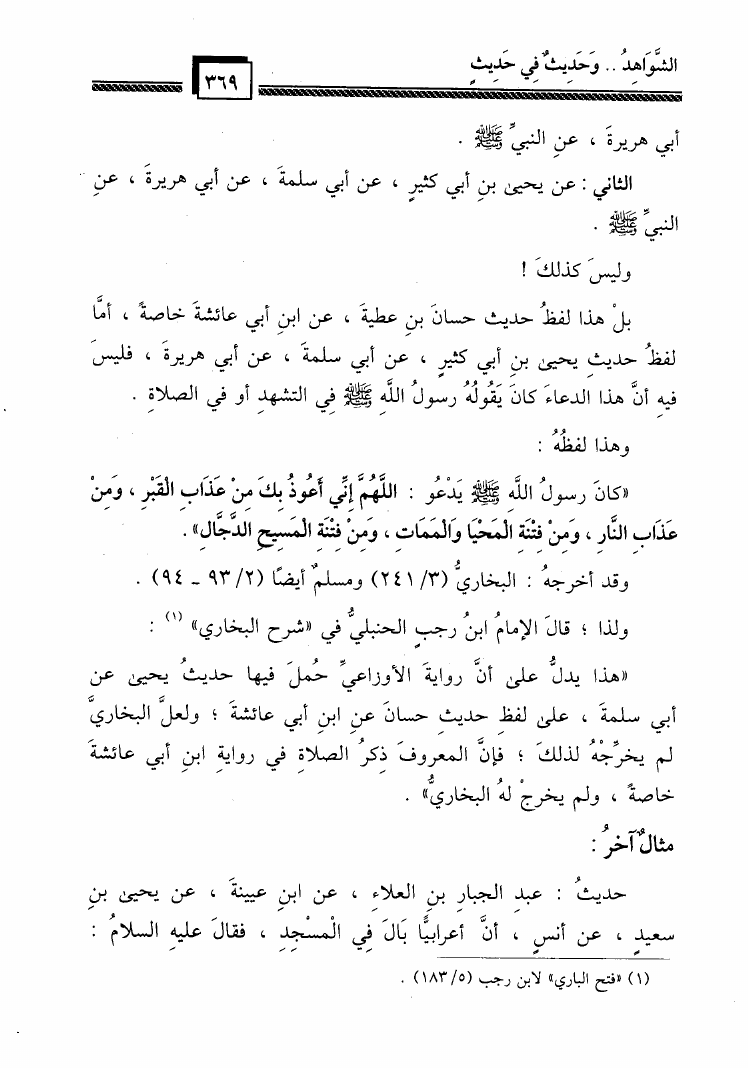 الشَّوَاهِدُ .. وَحَدِيثٌ فِي حَدِيثٍ
٣٦٩
أبي هريرةَ ، عنِ النبيِّ ﷺ .
الثاني : عن يحيىٰ بنِ أبي كثيرٍ ، عن أبي سلمةَ ، عن أبي هريرةَ ، عنِ
النبيِّ ﷺ .
وليسَ كذلكَ !
بلْ هذا لفظُ حديث حسانَ بنِ عطيةَ ، عن ابنِ أبي عائشةَ خاصةً ، أمَّا
لفظُ حديثِ يحيىٰ بنِ أبي كثيرٍ ، عن أبي سلمةَ ، عن أبي هريرةَ ، فليسَ
فيهِ أنَّ هذا الدعاءَ كانَ يَقُولُهُ رسولُ اللَّهِ ﷺ فِي التشهدِ أو في الصلاةِ .
وهذا لفظُهُ :
«كانَ رسولُ اللَّهِ ﷺ يَدْعُو : اللَّهُمَّ إِنِّي أَعُوذُ بِكَ مِنْ عَذَابِ القَبْرِ ، وَمِنْ
عَذَابِ النَّارِ ، وَمِنْ فِتْنَةِ المَحْيَا وَالْمَمَاتِ ، وَمِنْ فِتْنَةِ الْمَسِيحِ الدَّجَّالِ» .
وقد أخرجهُ : البخاريُّ (٢٤١/٣) ومسلمٌ أيضًا (٩٣/٢ ـ ٩٤) .
ولذا ؛ قالَ الإمامُ ابنُ رجبٍ الحنبليُّ في «شرح البخاري» (١) :
«هذا يدلُّ علىٰ أنَّ روايةَ الأوزاعيِّ حُملَ فيها حديثُ يحيىٰ عن
أبي سلمةَ ، علىٰ لفظِ حديثِ حسانَ عنِ ابنِ أبي عائشةَ ؛ ولعلَّ البخاريَّ
لم يخرِّجْهُ لذلكَ ؛ فإنَّ المعروفَ ذِكرُ الصلاةِ في روايةِ ابنِ أبي عائشةَ
خاصةً ، ولم يخرجْ لهُ البخاريُّ» .
مثالٌ آخرُ :
حديثُ : عبدِ الجبارِ بنِ العلاءِ ، عن ابنِ عيينةَ ، عن يحيىٰ بنِ
سعيدٍ ، عن أنسٍ ، أنَّ أعرابيًّا بَالَ فِي الْمسْجِدِ ، فقالَ عليهِ السلامُ :
(١) «فتح الباري» لابن رجب (١٨٣/٥) .